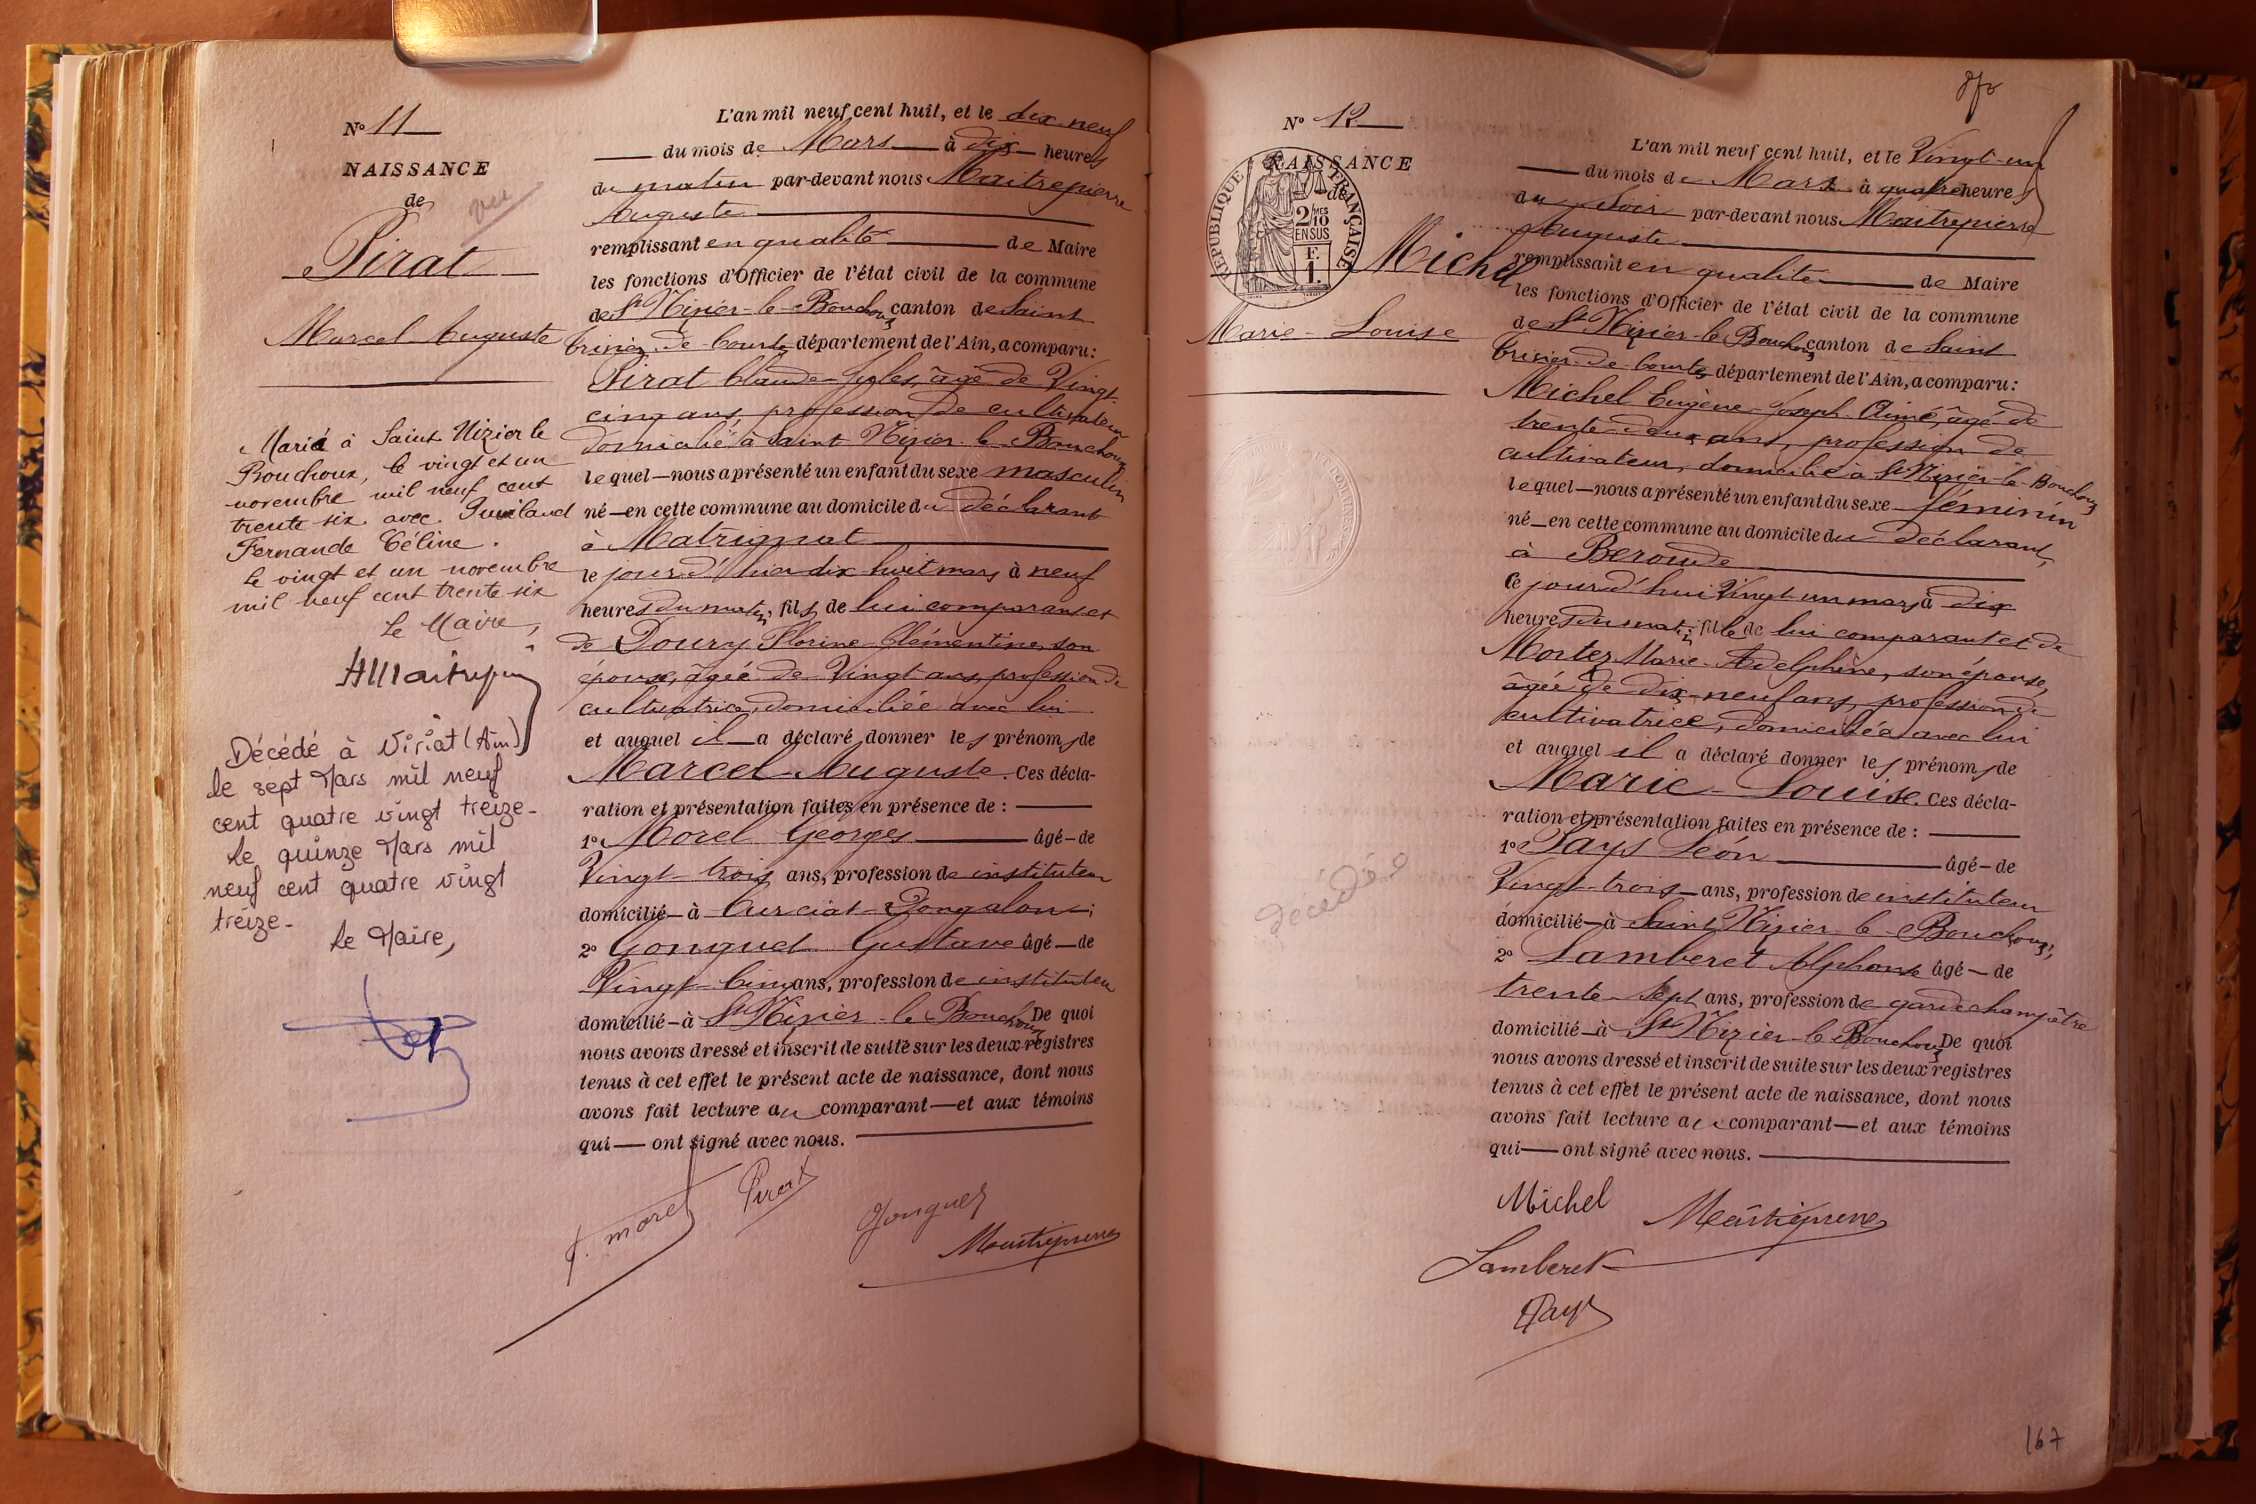 N° 11
NAISSANCE
de
vu
Pirat
Marcel Auguste
Marié à Saint Nizier le
Bouchoux, le vingt et un
novembre mil neuf cent
trente six avec
Fernande Céline.
Le vingt et un novembre
mil neuf cent trente six
Le Maire,
Décédé à Viriat (Ain)
le sept Mars mil neuf
cent quatre vingt treize-
Le quinze Mars mil
neuf cent quatre vingt
treize-
Le Maire,
L'an mil neuf cent huit, et le dix-neuf
du mois de Mars à dix heures
du matin par-devant nous Maitrepierre
Auguste
remplissant en qualité de Maire
les fonctions d'Officier de l'état civil de la commune
de St Nizier-le-Bouchoux canton de Saint
Trivier-de-Courtes département de l'Ain, a comparu:
Pirat Claude-Jules, âgé de Vingt
cinq ans, profession de cultivateur
domicilié à Saint Nizier-le-Bouchoux
lequel nous a présenté un enfant du sexe masculin
né en cette commune au domicile du déclarant
à Matrignat
le jour d'hier dix-huit mars à neuf
heures du matin, fils de lui comparant et
de Doury Florine Clémentine, son
épouse, âgée de Vingt ans, profession de
cultivatrice, domiciliée avec lui
et auquel il a déclaré donner les prénoms de
Marcel-Auguste. Ces décla-
ration et présentation faites en présence de :
1° Morel Georges âgé de
Vingt-trois ans, profession de instituteur
domicilié à Curciat-Dongalon;
2° Gonguet Gustave âgé de
Vingt-Cinq ans, profession de instituteur
domicilié à St Nizier-le-Bouchoux De quoi
nous avons dressé et inscrit de suite sur les deux registres
tenus à cet effet le présent acte de naissance, dont nous
avons fait lecture au comparant et aux témoins
qui ont signé avec nous.
G. morel Pirat Gonguet
Maitrepierre
N° 12
NAISSANCE
de
RÉPUBLIQUE FRANÇAISE
2/10 MES
EN SUS
F.
1.
Michel
Marie-Louise
décédée
L'an mil neuf cent huit, et le Vingt-un
du mois de Mars à quatre heures
du soir par-devant nous Maitrepierre
Auguste
remplissant en qualité de Maire
les fonctions d'Officier de l'état civil de la commune
de St Nizier-le-Bouchoux canton de Saint
Trivier-de-Courtes département de l'Ain, a comparu:
Michel Eugène-Joseph-Aimé, âgé de
trente-deux ans, profession de
cultivateur, domicilié à St Nizier-le-Bouchoux
lequel nous a présenté un enfant du sexe féminin
né en cette commune au domicile du déclarant,
à Beroude
ce jour d'hui Vingt-un mars à dix
heures du matin, fille de lui comparant et de
Morter Marie-Adelphine, son épouse,
âgée de dix-neuf ans, profession de
cultivatrice, domiciliée avec lui
et auquel il a déclaré donner les prénoms de
Marie-Louise. Ces décla-
ration et présentation faites en présence de :
1° Pays Léon âgé de
Vingt-trois ans, profession de instituteur
domicilié à Saint Nizier-le-Bouchoux;
2° Lamberet Alphonse âgé de
trente-sept ans, profession de garde champêtre
domicilié à St Nizier-le-Bouchoux De quoi
nous avons dressé et inscrit de suite sur les deux registres
tenus à cet effet le présent acte de naissance, dont nous
avons fait lecture au comparant et aux témoins
qui ont signé avec nous.
Michel Maitrepierre
Lamberet
Pays
167